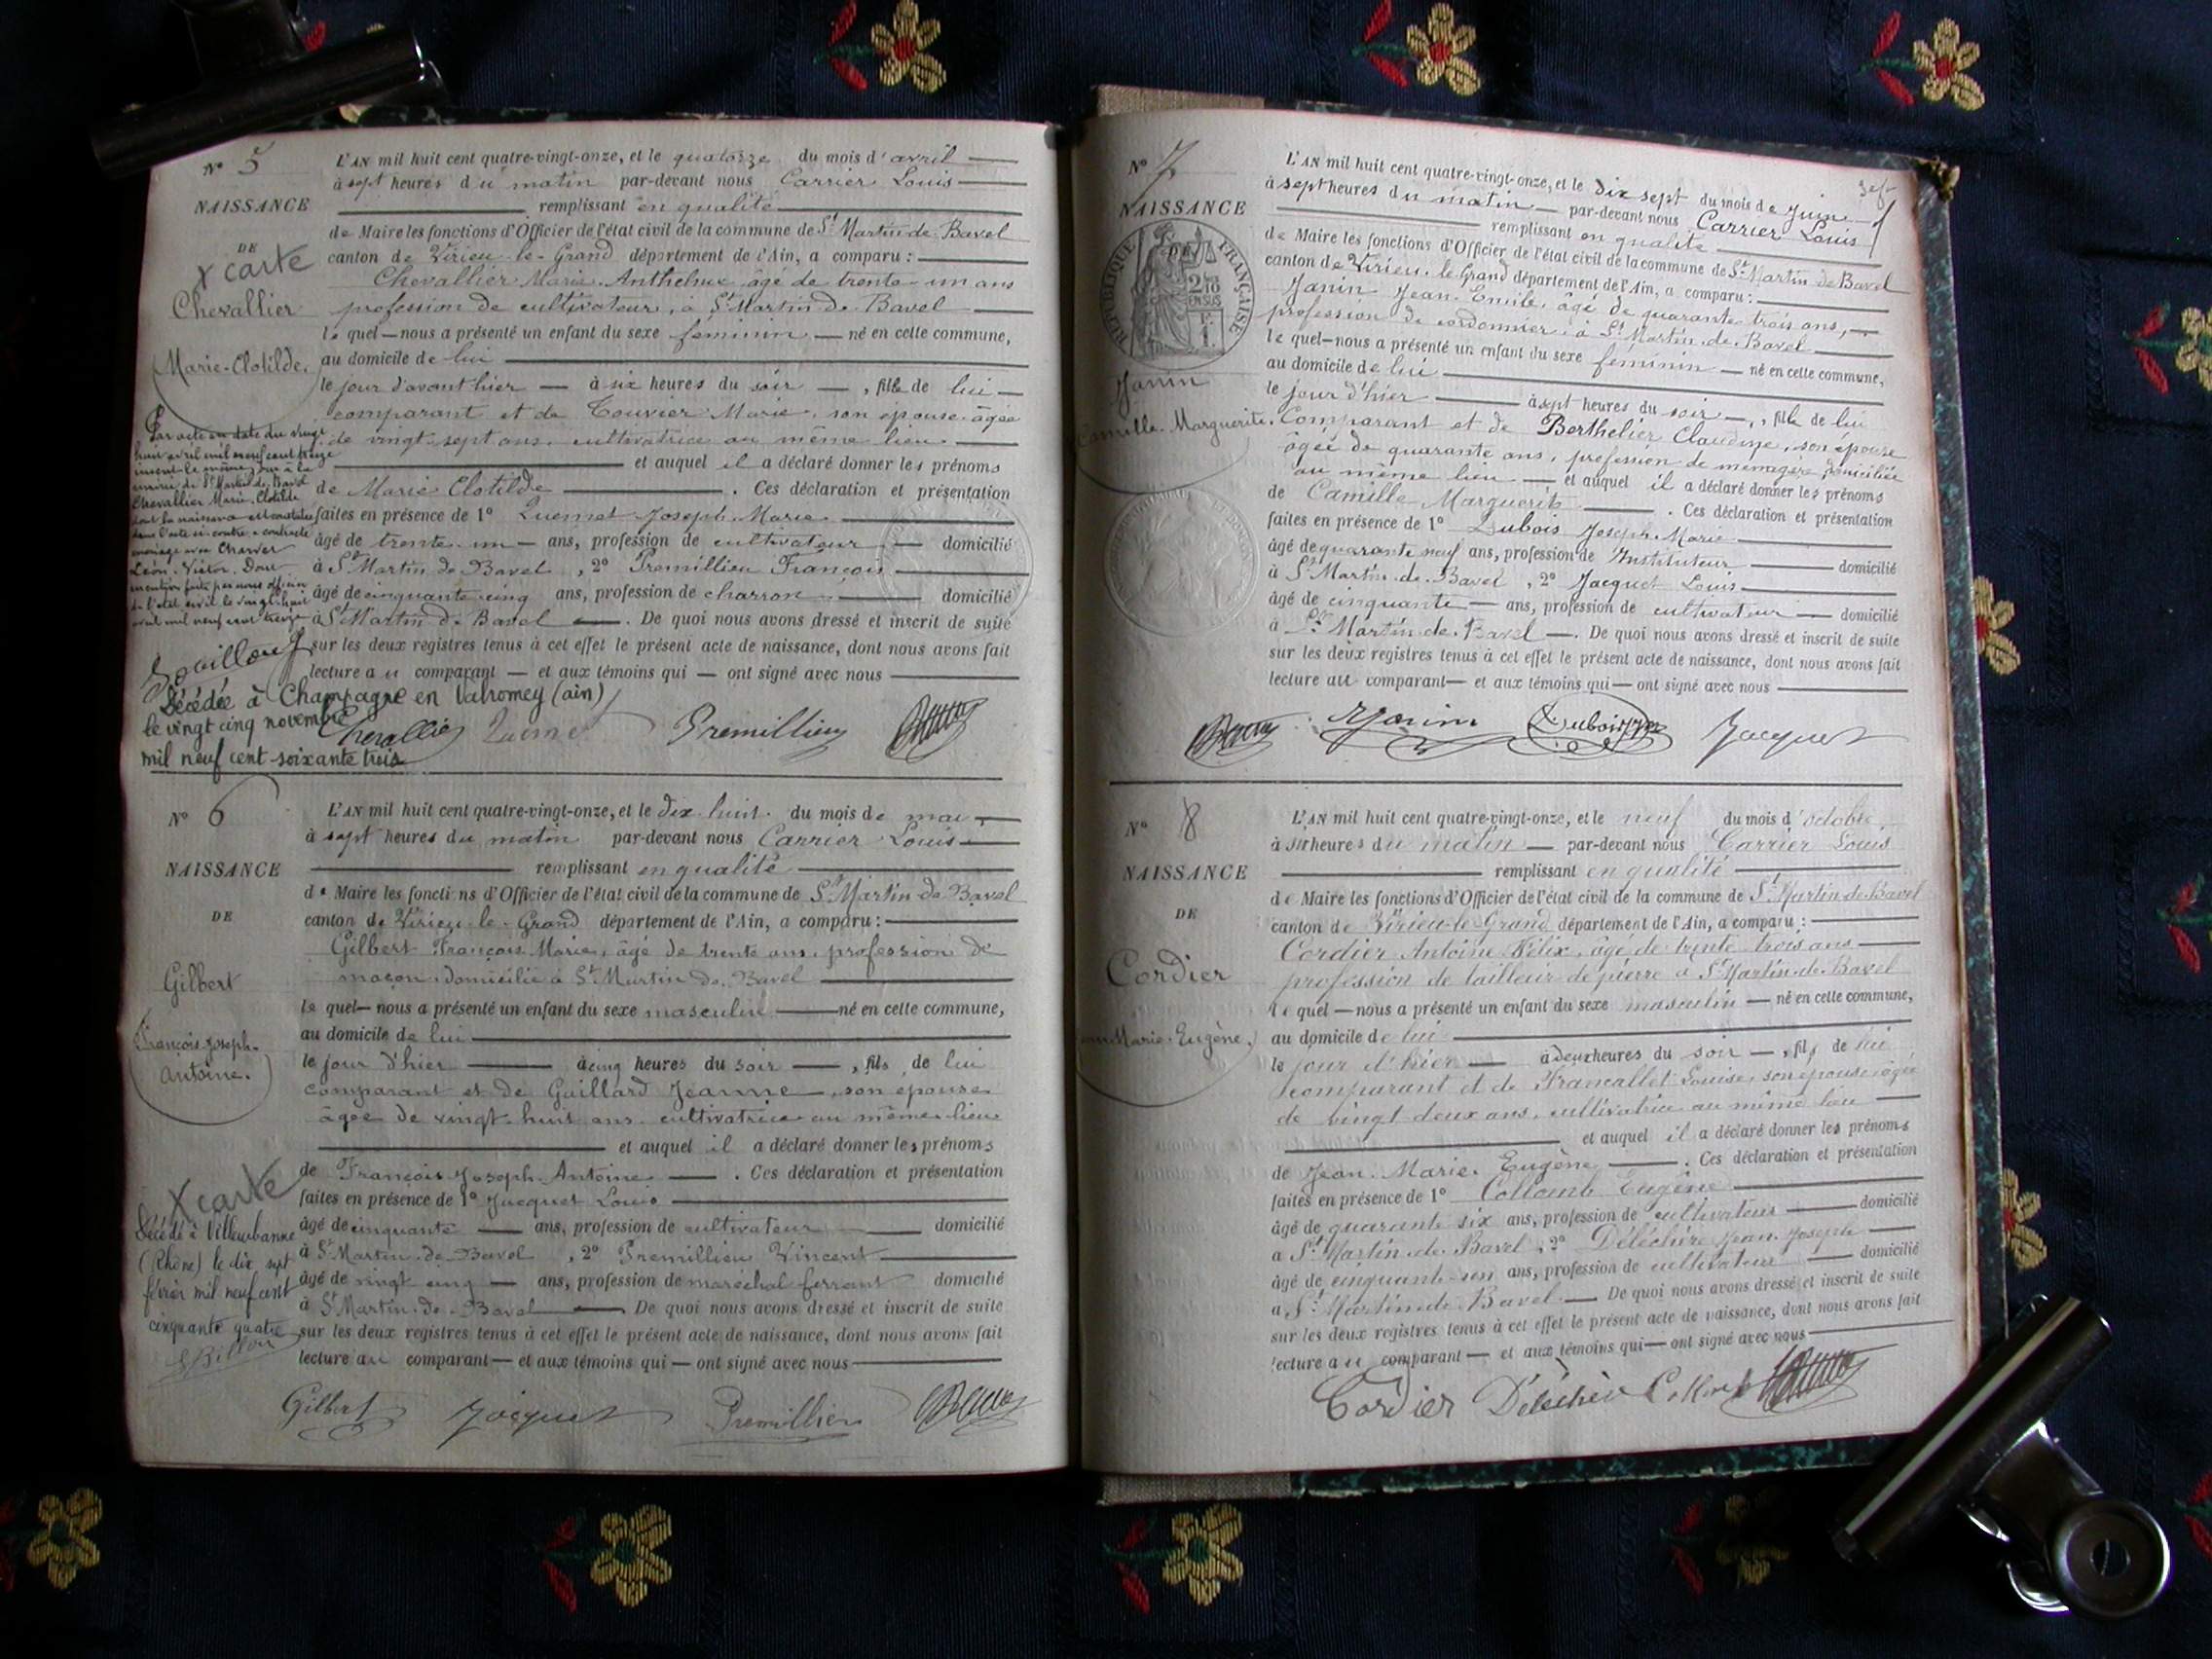 N° 5
NAISSANCE
DE
X carte
Chevallier
Marie-Clotilde.
L'AN mil huit cent quatre-vingt-onze, et le quatorze du mois d'avril
à sept heures du matin par-devant nous Carrier Louis
remplissant en qualité
de Maire les fonctions d'Officier de l'état civil de la commune de St Martin de Bavel
canton de Virieu-le-Grand département de l'Ain, a comparu :
Chevallier Marie Anthelme âgé de trente un ans
profession de cultivateur, à St Martin de Bavel
lequel nous a présenté un enfant du sexe feminin né en cette commune,
au domicile de lui
le jour d'avant hier à six heures du soir, fille de lui
comparant et de Touvier Marie, son épouse âgée
de vingt sept ans, cultivatrice au même lieu
et auquel il a déclaré donner les prénoms
de Marie Clotilde. Ces déclaration et présentation
faites en présence de 1° Quemet Joseph Marie
âgé de trente un ans, profession de cultivateur domicilié
à St Martin de Bavel, 2° Premillieu François
âgé de cinquante cinq ans, profession de charron domicilié
à St Martin de Bavel. De quoi nous avons dressé et inscrit de suite
sur les deux registres tenus à cet effet le présent acte de naissance, dont nous avons fait
lecture au comparant et aux témoins qui ont signé avec nous
Par acte en date du vingt
huit avril mil neuf cent treize
inscrit le même jour à la
mairie de St Martin de Bavel
Chevallier Marie Clotilde
dont la naissance est constatée
dans l'acte ci-contre a contracté
mariage avec Charvet
Léon Victor. Dont
mention faite par nous officier
de l'état civil le vingt huit
avril mil neuf cent treize
Décédée à Champagne en Valromey (ain)
le vingt cinq novembre
mil neuf cent soixante trois
Chevallier Quemet Premillieu
N° 6
NAISSANCE
DE
Gilbert
François-Joseph-
Antoine.
L'AN mil huit cent quatre-vingt-onze, et le dix huit du mois de mai
à sept heures du matin par-devant nous Carrier Louis
remplissant en qualité
de Maire les fonctions d'Officier de l'état civil de la commune de St Martin de Bavel
canton de Virieu-le-Grand département de l'Ain, a comparu :
Gilbert François Marie, âgé de trente ans, profession de
maçon, domicilié à St Martin de Bavel
lequel nous a présenté un enfant du sexe masculin né en cette commune,
au domicile de lui
le jour d'hier à cinq heures du soir, fils de lui
comparant et de Gaillard Jeanne, son épouse
âgée de vingt-huit ans, cultivatrice au même lieu
et auquel il a déclaré donner les prénoms
de François Joseph Antoine. Ces déclaration et présentation
faites en présence de 1° Jacquet Louis
âgé de cinquante ans, profession de cultivateur domicilié
à St Martin de Bavel, 2° Premillieu Vincent
âgé de vingt cinq ans, profession de maréchal ferrant domicilié
à St Martin de Bavel De quoi nous avons dressé et inscrit de suite
sur les deux registres tenus à cet effet le présent acte de naissance, dont nous avons fait
lecture au comparant et aux témoins qui ont signé avec nous
X carte
Décédé à Villeurbanne
(Rhône) le dix sept
février mil neuf cent
cinquante quatre
Gilbert Jacquet Premillieu
N° 7
NAISSANCE
RÉPUBLIQUE FRANÇAISE
2/10 EN SUS
Janin
Camille-Marguerite.
L'AN mil huit cent quatre-vingt-onze, et le dix sept du mois de juin
à sept heures du matin par-devant nous Carrier Louis
remplissant en qualité
de Maire les fonctions d'Officier de l'état civil de la commune de St Martin de Bavel
canton de Virieu-le-Grand département de l'Ain, a comparu :
Janin Jean Emile, âgé de quarante trois ans,
profession de cordonnier à St Martin de Bavel
lequel nous a présenté un enfant du sexe féminin né en cette commune,
au domicile de lui
le jour d'hier à sept heures du soir, fille de lui
Comparant et de Berthelier Claudine, son épouse
âgée de quarante ans, profession de ménagère, domiciliée
au même lieu et auquel il a déclaré donner les prénoms
de Camille Marguerite. Ces déclaration et présentation
faites en présence de 1° Dubois Joseph Marie
âgé de quarante neuf ans, profession de Instituteur domicilié
à St Martin de Bavel, 2° Jacquet Louis
âgé de cinquante ans, profession de cultivateur domicilié
à St Martin de Bavel. De quoi nous avons dressé et inscrit de suite
sur les deux registres tenus à cet effet le présent acte de naissance, dont nous avons fait
lecture au comparant et aux témoins qui ont signé avec nous
Janin Dubois Jacquet
N° 8
NAISSANCE
DE
Cordier
Marie-Eugène.
L'AN mil huit cent quatre-vingt-onze, et le neuf du mois d'octobre
à heures du matin par-devant nous Carrier Louis
remplissant en qualité
de Maire les fonctions d'Officier de l'état civil de la commune de St Martin de Bavel
canton de Virieu-le-Grand département de l'Ain, a comparu :
Cordier Antoine Félix, âgé de trente trois ans
profession de tailleur de pierre à St Martin de Bavel
lequel nous a présenté un enfant du sexe masculin né en cette commune,
au domicile de lui
le jour d'hier à deux heures du soir, fils de lui
comparant et de Francallet Louise, son épouse âgée
de vingt deux ans, cultivatrice au même lieu
et auquel il a déclaré donner les prénoms
de Jean Marie Eugène. Ces déclaration et présentation
faites en présence de 1° Collomb Eugène
âgé de quarante six ans, profession de cultivateur domicilié
à St Martin de Bavel, 2° Deléchère Jean Joseph
âgé de cinquante ans, profession de cultivateur domicilié
à St Martin de Bavel. De quoi nous avons dressé et inscrit de suite
sur les deux registres tenus à cet effet le présent acte de naissance, dont nous avons fait
lecture au comparant et aux témoins qui ont signé avec nous
Cordier